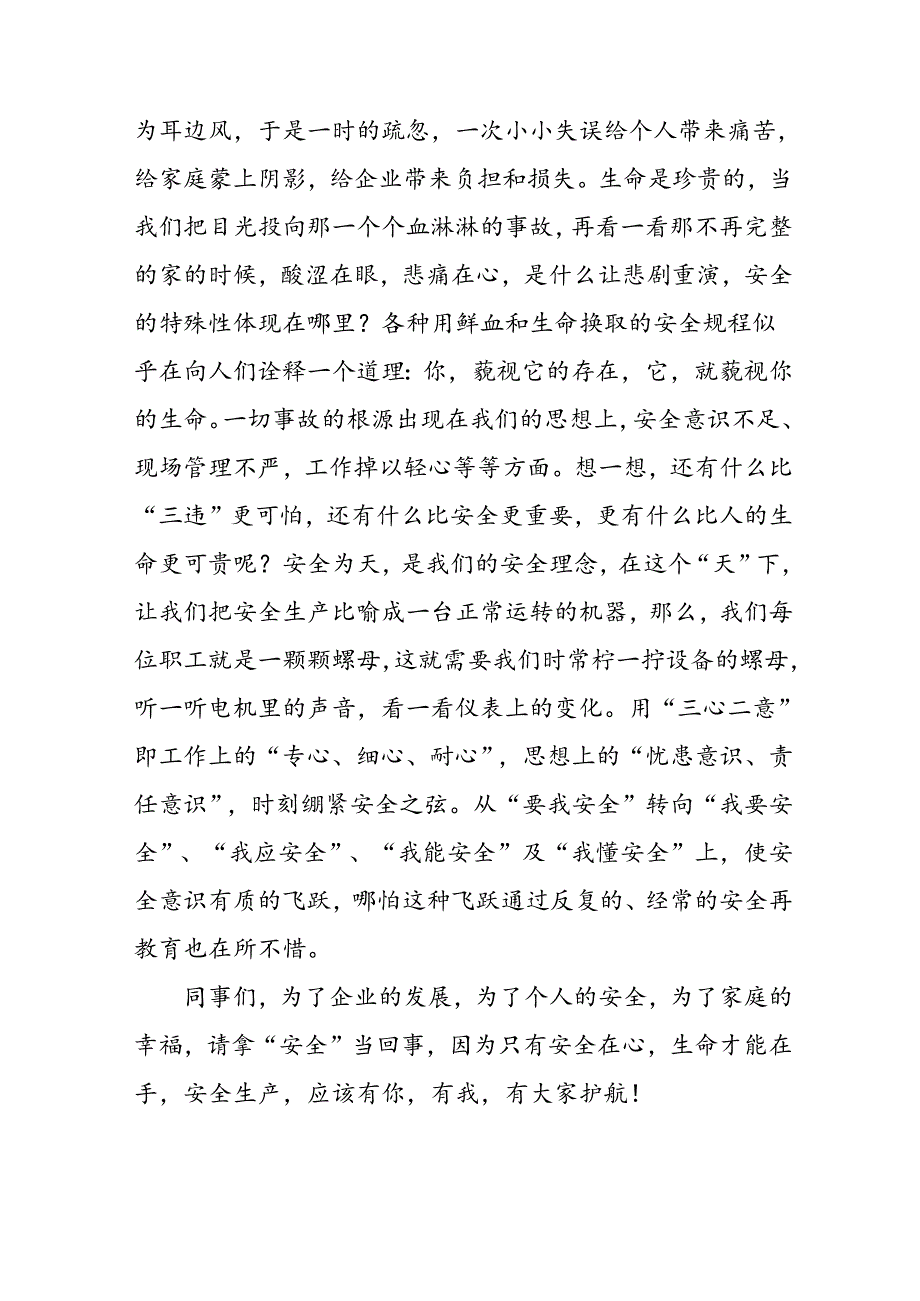 为耳边风，于是一时的疏忽，一次小小失误给个人带来痛苦，
给家庭蒙上阴影，给企业带来负担和损失。生命是珍贵的，当
我们把目光投向那一个个血淋淋的事故，再看一看那不再完整
的家的时候，酸涩在眼，悲痛在心，是什么让悲剧重演，安全
的特殊性体现在哪里？各种用鲜血和生命换取的安全规程似
乎在向人们诠释一个道理：你，藐视它的存在，它，就藐视你
的生命。一切事故的根源出现在我们的思想上，安全意识不足、
现场管理不严，工作掉以轻心等等方面。想一想，还有什么比
“三违”更可怕，还有什么比安全更重要，更有什么比人的生
命更可贵呢？安全为天，是我们的安全理念，在这个“天”下，
让我们把安全生产比喻成一台正常运转的机器，那么，我们每
位职工就是一颗颗螺母，这就需要我们时常柠一拧设备的螺母，
听一听电机里的声音，看一看仪表上的变化。用“三心二意”
即工作上的“专心、细心、耐心”，思想上的“忧患意识、责
任意识”，时刻绷紧安全之弦。从“要我安全”转向“我要安
全”、“我应安全”、“我能安全”及“我懂安全”上，使安
全意识有质的飞跃，哪怕这种飞跃通过反复的、经常的安全再
教育也在所不惜。
同事们，为了企业的发展，为了个人的安全，为了家庭的
幸福，请拿“安全”当回事，因为只有安全在心，生命才能在
手，安全生产，应该有你，有我，有大家护航！